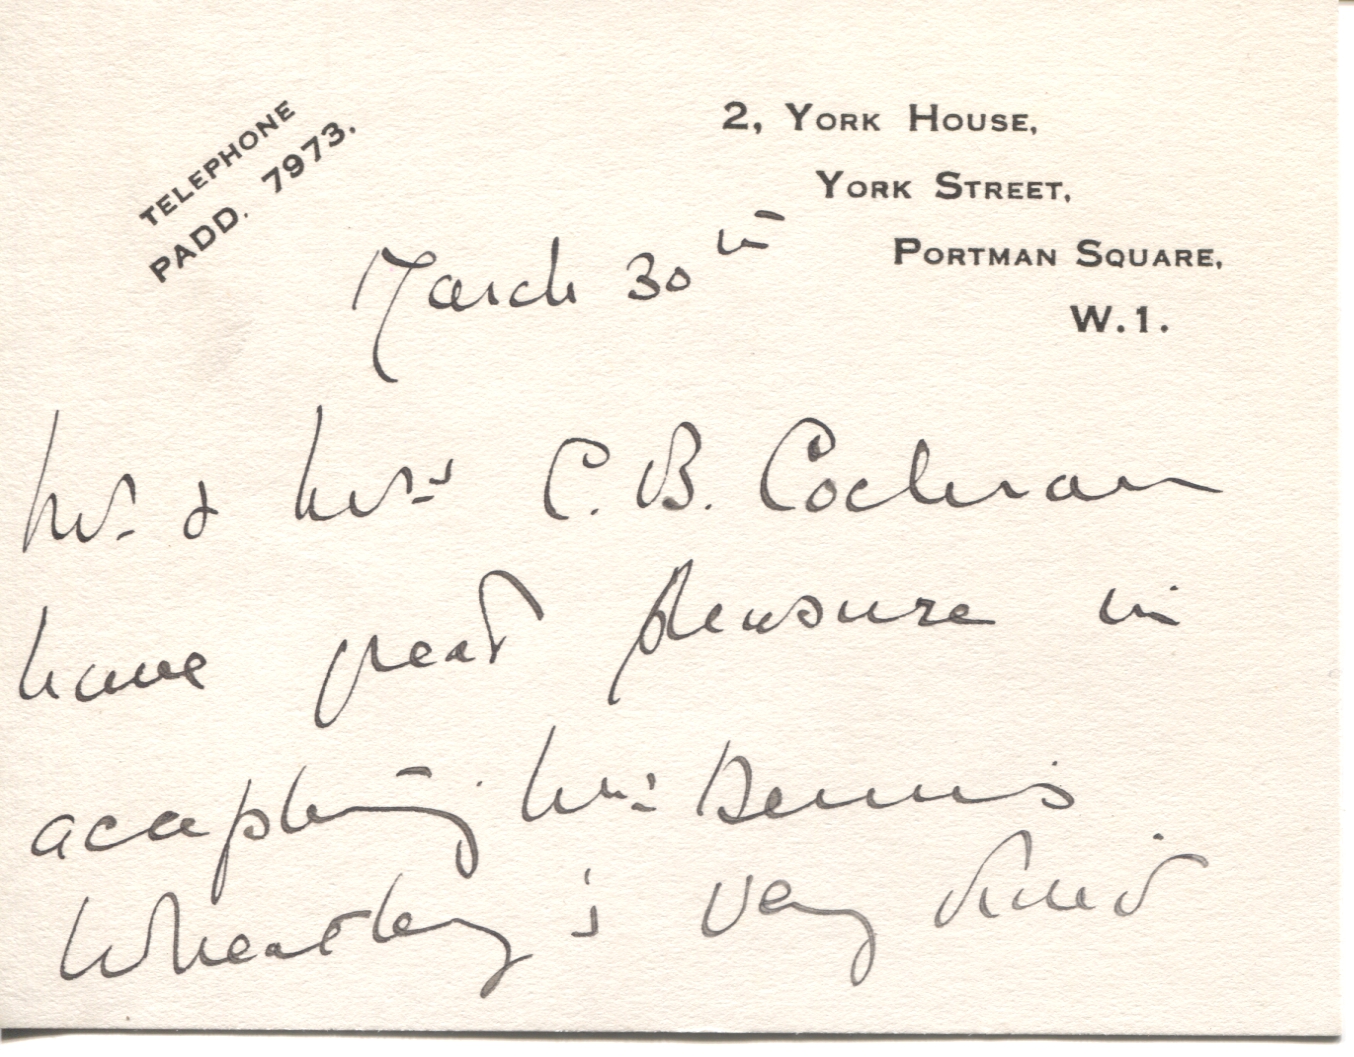 TELEPHONE
PADD. 7973.
2, YORK HOUSE,
YORK STREET,
PORTMAN SQUARE,
W.1.
March 30th
Mr. & Mrs C. B. Cochran
have great pleasure in
accepting Mrs Dennis
Wheatley's very kind